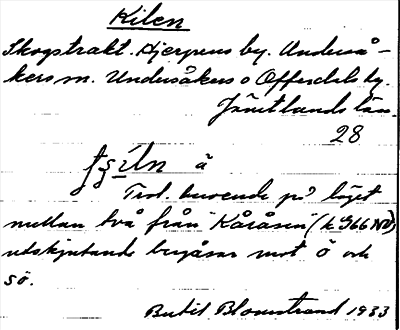 Kilen
Skogstrakt. Hjerpens by. Underså-
kers sn. Undersåkers o Offerdals tg.
Jämtlands län.
28
å
Trol. beroende på läget
mellan två från "Kåråsen" (k 366 NV)
utskjutande bergåsar mot ö och
sö.
Bertil Blomstrand 1933